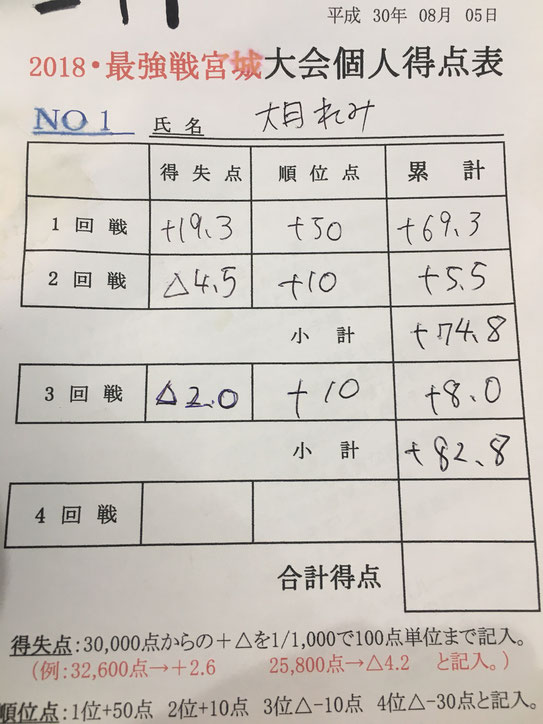 平成 30年 08月 05日
2018・最強戦宮城大会個人得点表
NO 1 氏名
得失点 順位点 累計
1回戦 +19.3 +50 +69.3
2回戦 △4.5 +10 +5.5
小計 +74.8
3回戦 △2.0 +10 +8.0
小計 +82.8
4回戦
合計得点
得失点:30,000点からの+△を1/1,000で100点単位まで記入。
(例:32,600点→+2.6 25,800点→△4.2 と記入。)
順位点:1位+50点 2位+10点 3位△-10点 4位△-30点と記入。